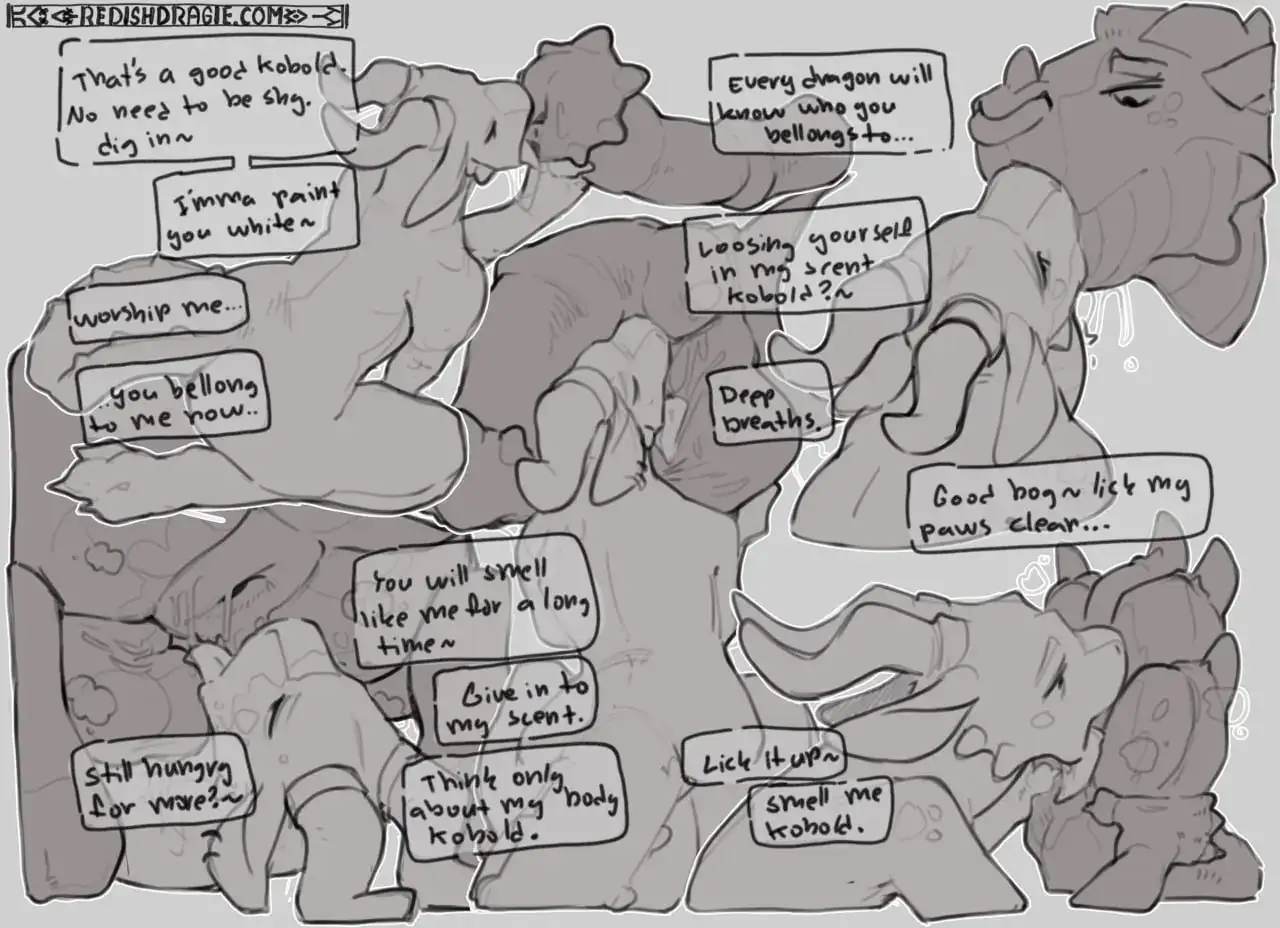 REDISHDRAGIE.COM
That's a good kobold.
No need to be shy.
dig in~
I'mma paint
you white~
worship me...
..you bellong
to me now..
Every dragon will
know who you
bellongs to...
Loosing yourself
in my scent
kobold?~
Deep
breaths.
Good boy~ lick my
paws clear...
You will smell
like me for a long
time~
Give in to
my scent.
Think only
about my body
kobold.
still hungry
for more?~
Lick it up~
smell me
kobold.